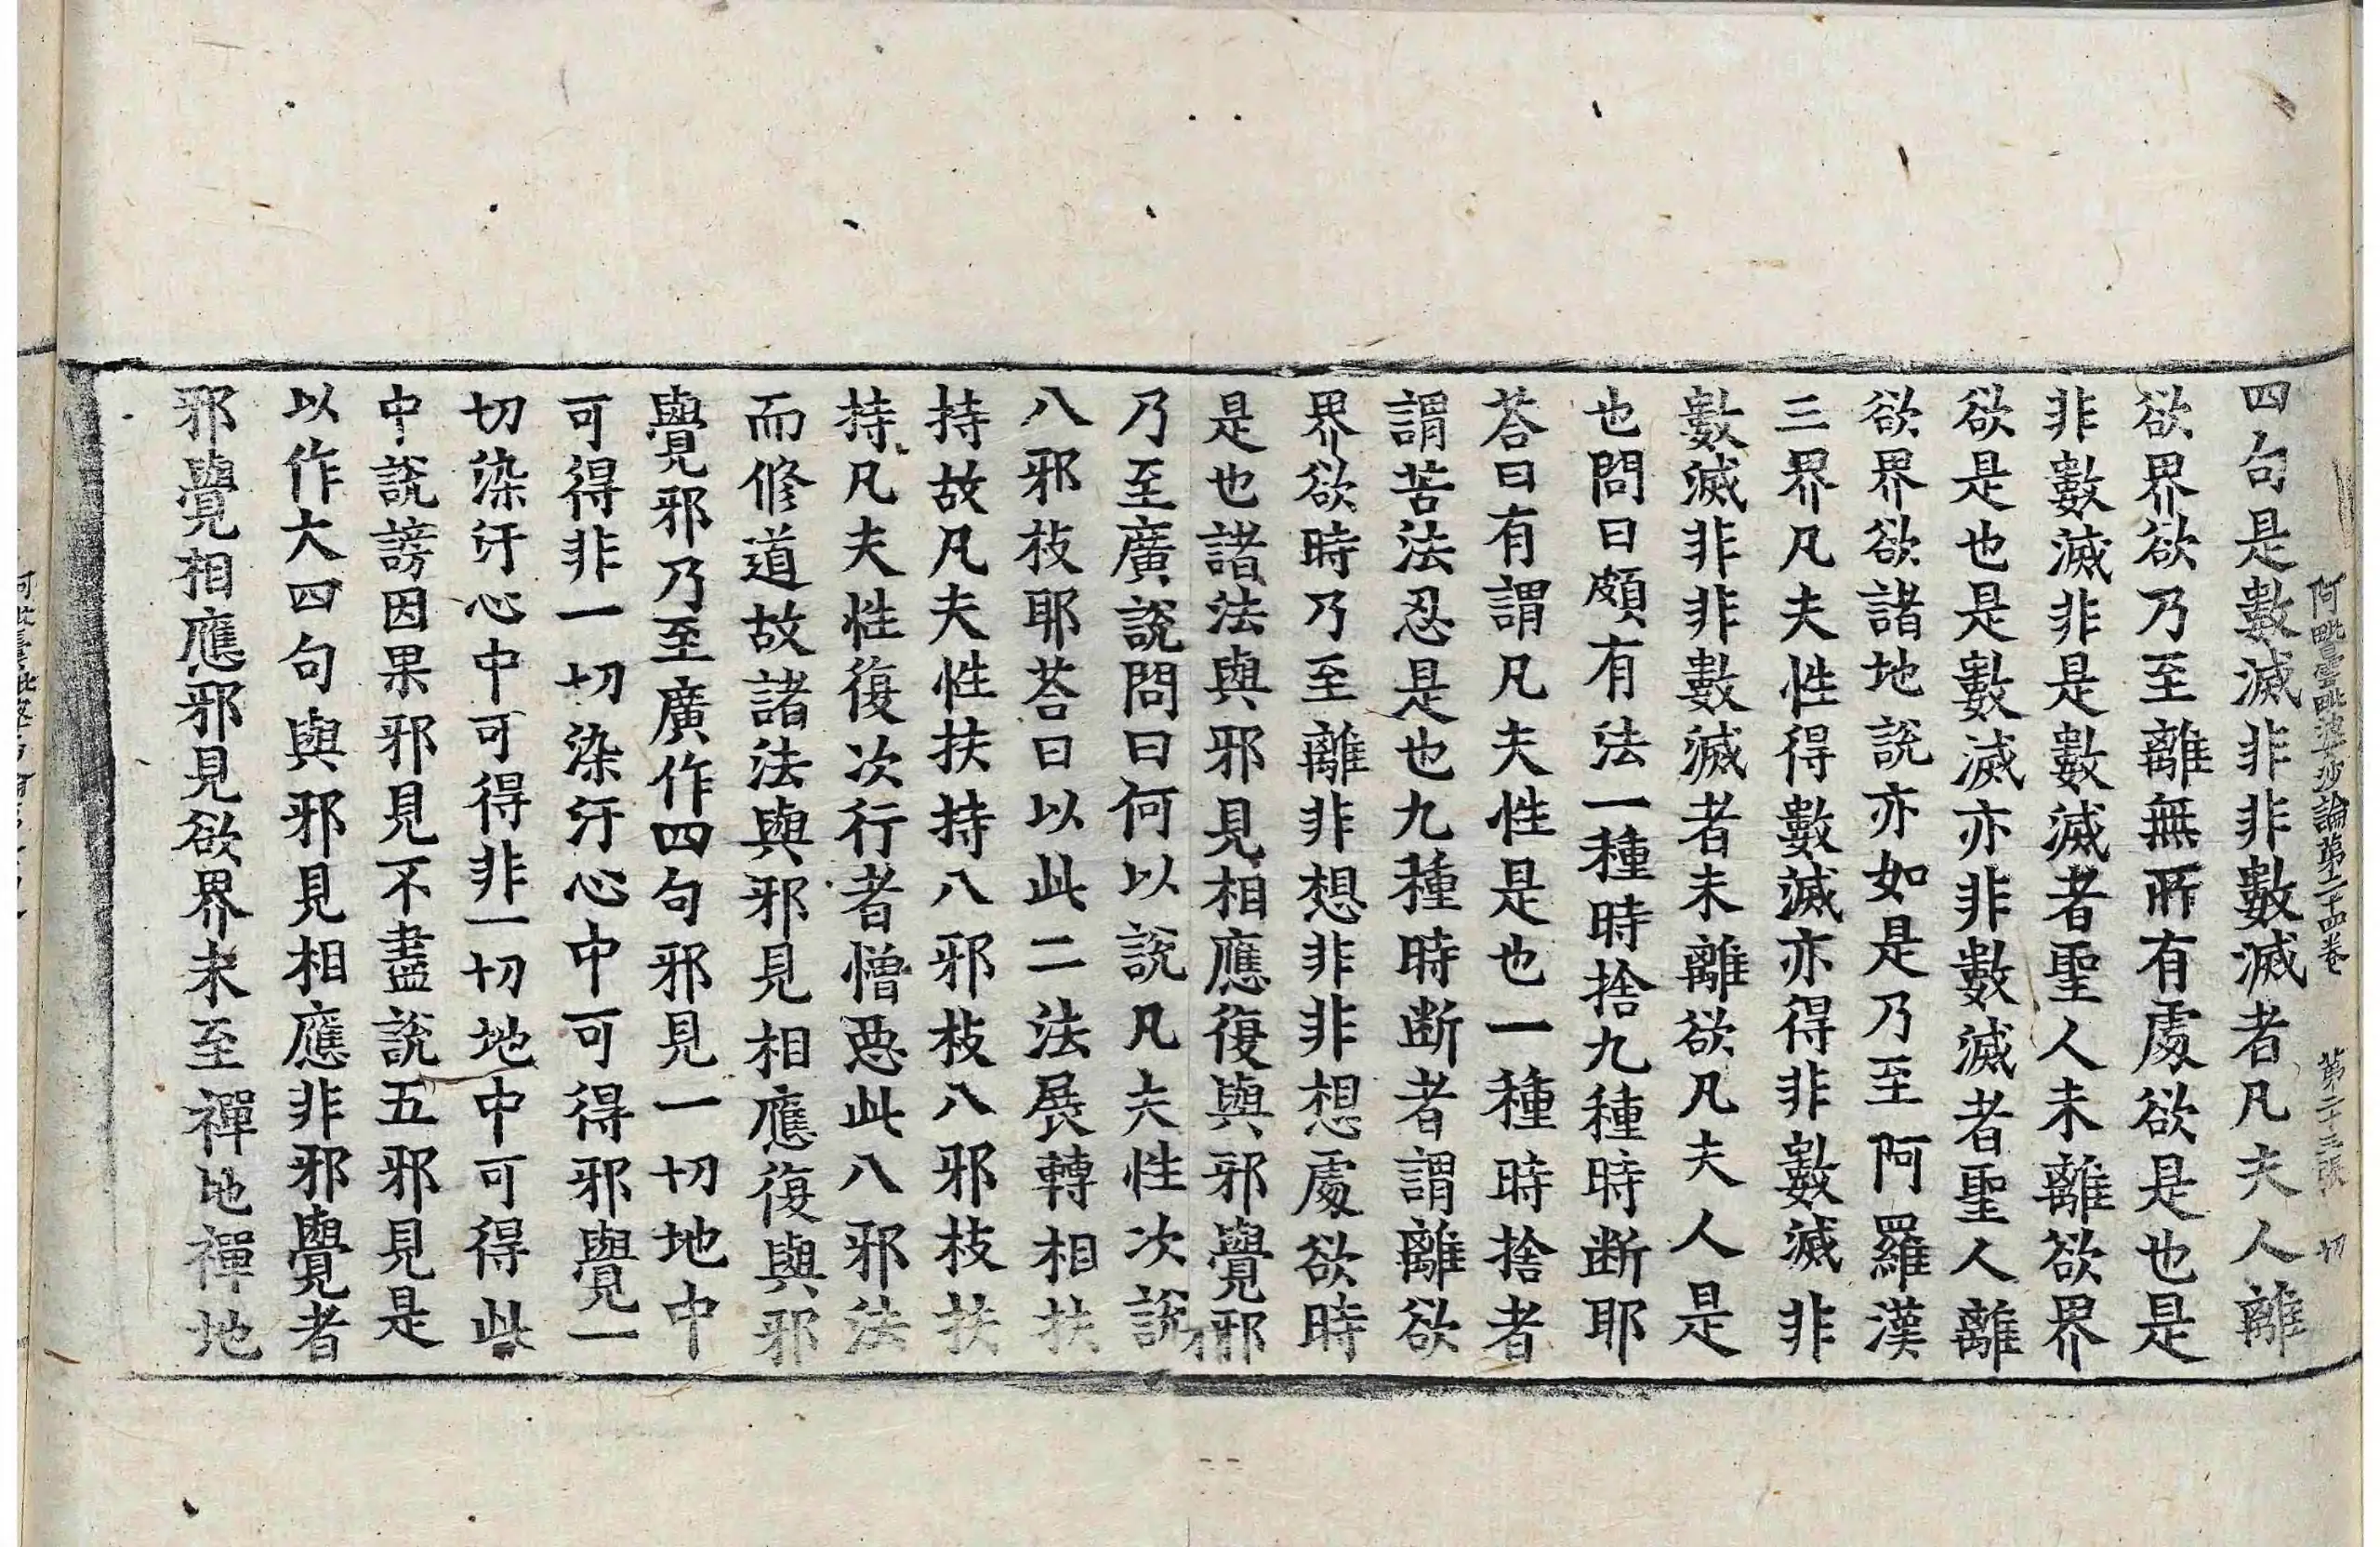 阿毗曇毗婆沙論第二十四卷　第二十三張　切
四句是數滅非非數滅者凡夫人離
欲界欲乃至離無所有處欲是也是
非數滅非是數滅者聖人未離欲界
欲是也是數滅亦非數滅者聖人離
欲界欲諸地說亦如是乃至阿羅漢
三界凡夫性得數滅亦得非數滅非
數滅非非數滅者未離欲凡夫人是
也問曰頗有法一種時捨九種時斷耶
荅曰有謂凡夫性是也一種時捨者
謂苦法忍是也九種時斷者謂離欲
界欲時乃至離非想非非想處欲時
是也諸法與邪見相應復與邪覺耶
乃至廣說問曰何以說凡夫性次說
八邪枝耶荅曰以此二法展轉相扶
持故凡夫性扶持八邪枝八邪枝扶
持凡夫性復次行者憎惡此八邪法
而修道故諸法與邪見相應復與邪
覺邪乃至廣作四句邪見一切地中
可得非一切染汙心中可得邪覺一
切染汙心中可得非一切地中可得此
中說謗因果邪見不盡說五邪見是
以作大四句與邪見相應非邪覺者
邪覺相應邪見欲界未至禪地禪地